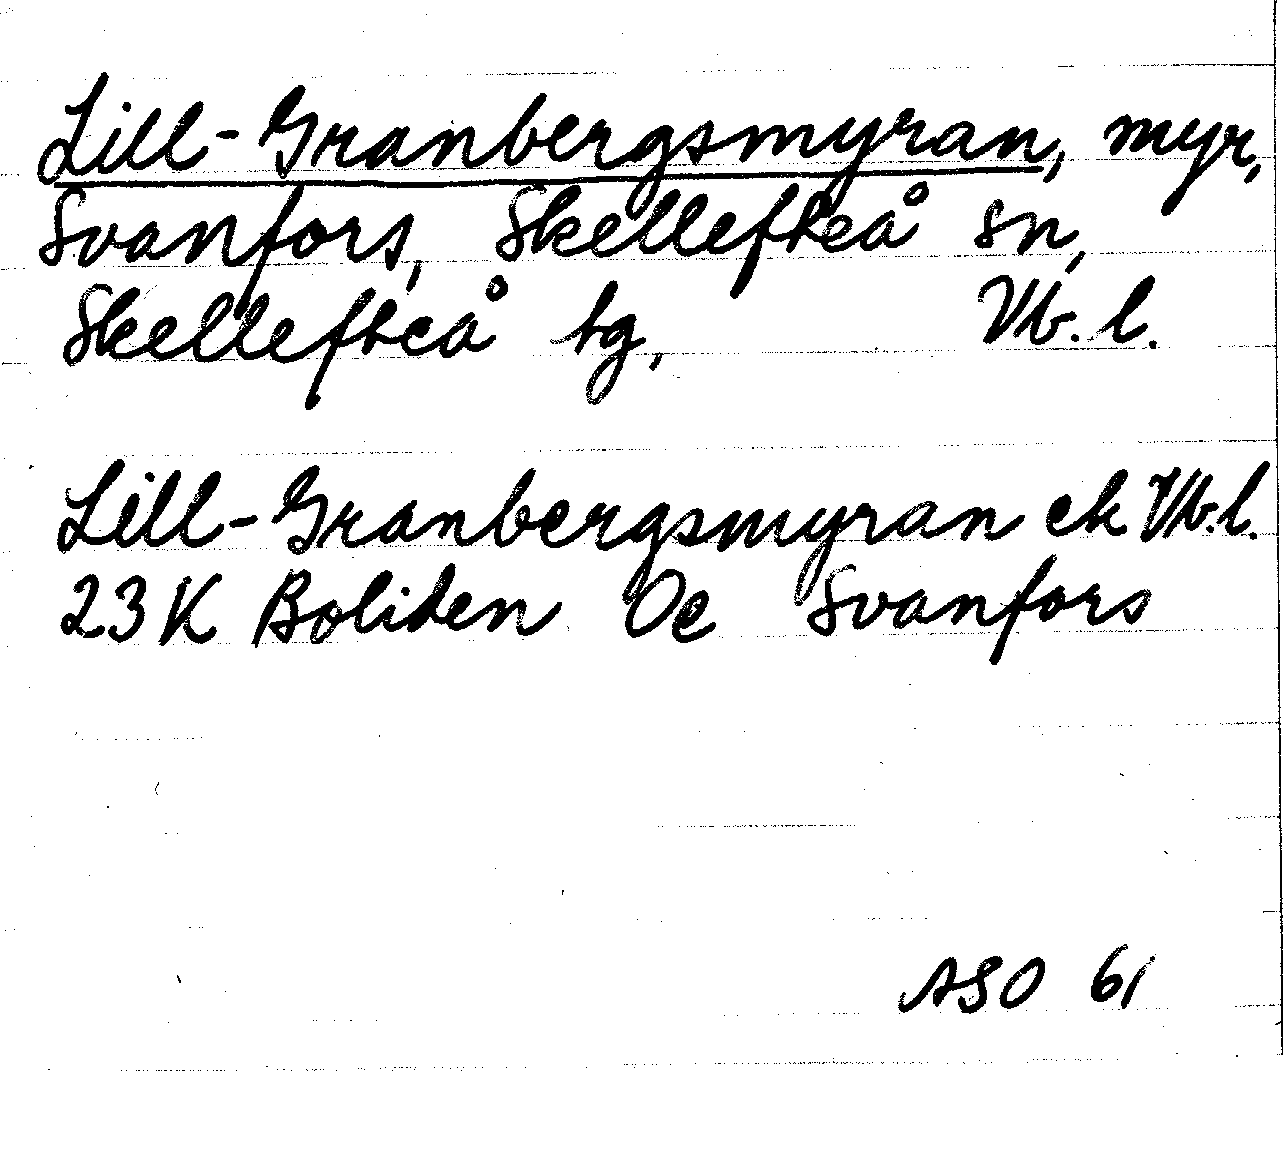 Lill-Granbergsmyran, myr,
Svanfors, Skellefteå sn,
Skellefteå tg, Vb. l.
Lill-Granbergsmyran ek Vb. l.
23K Boliden 0e Svanfors
ASO 61